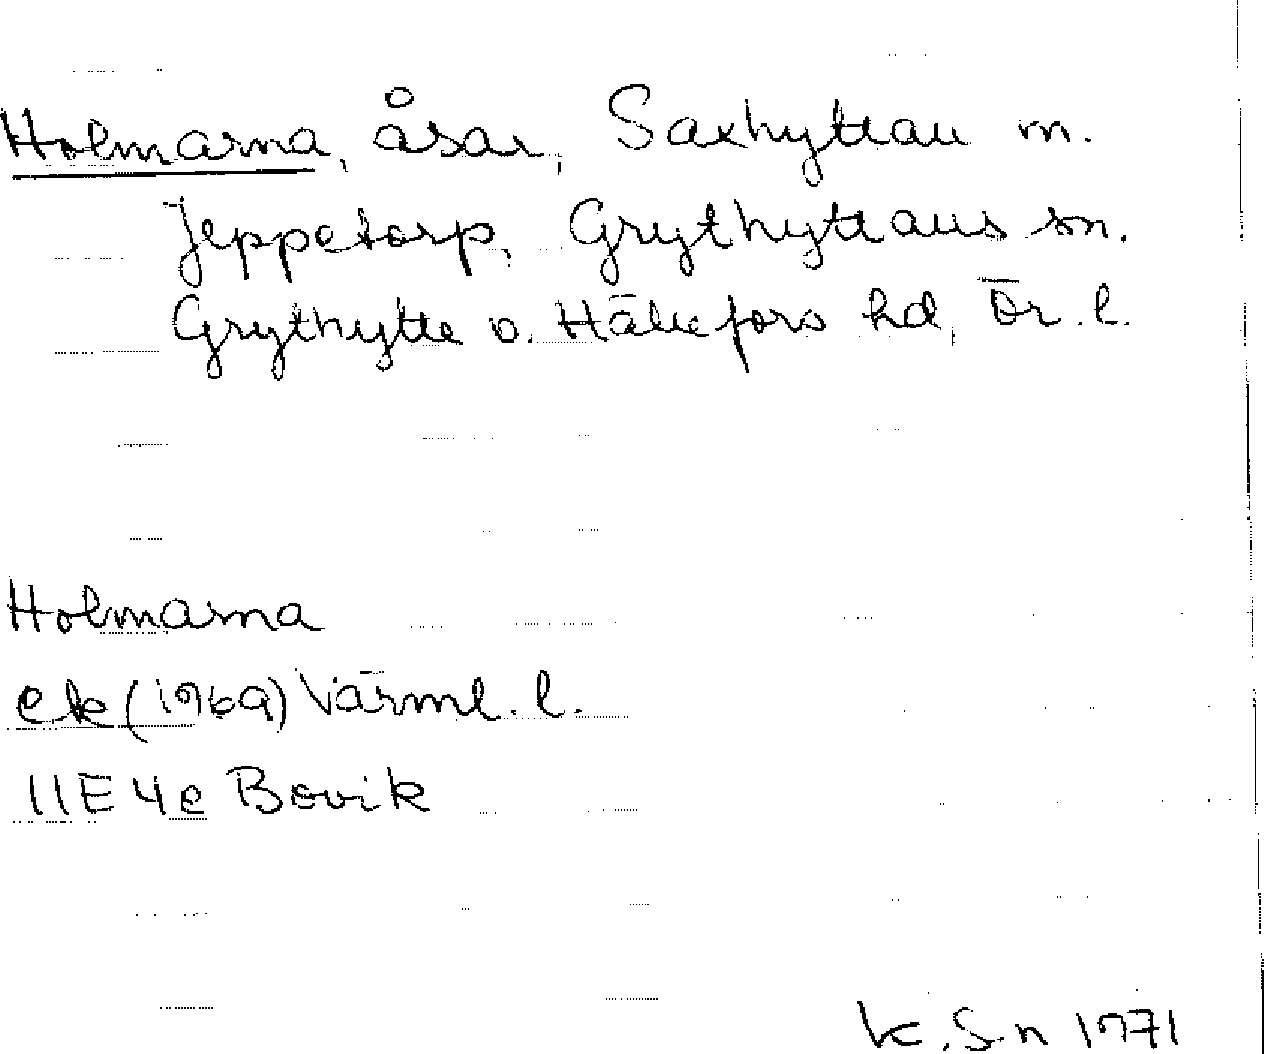 Holmarna, åsar, Saxhyttan m.
Jeppetorp, Grythyttans sn.
Grythytte o. Hällefors hd, Ör. l.
Holmarna
ek (1969) Värml. l.
11E 4e Bovik
K. S-n 1971